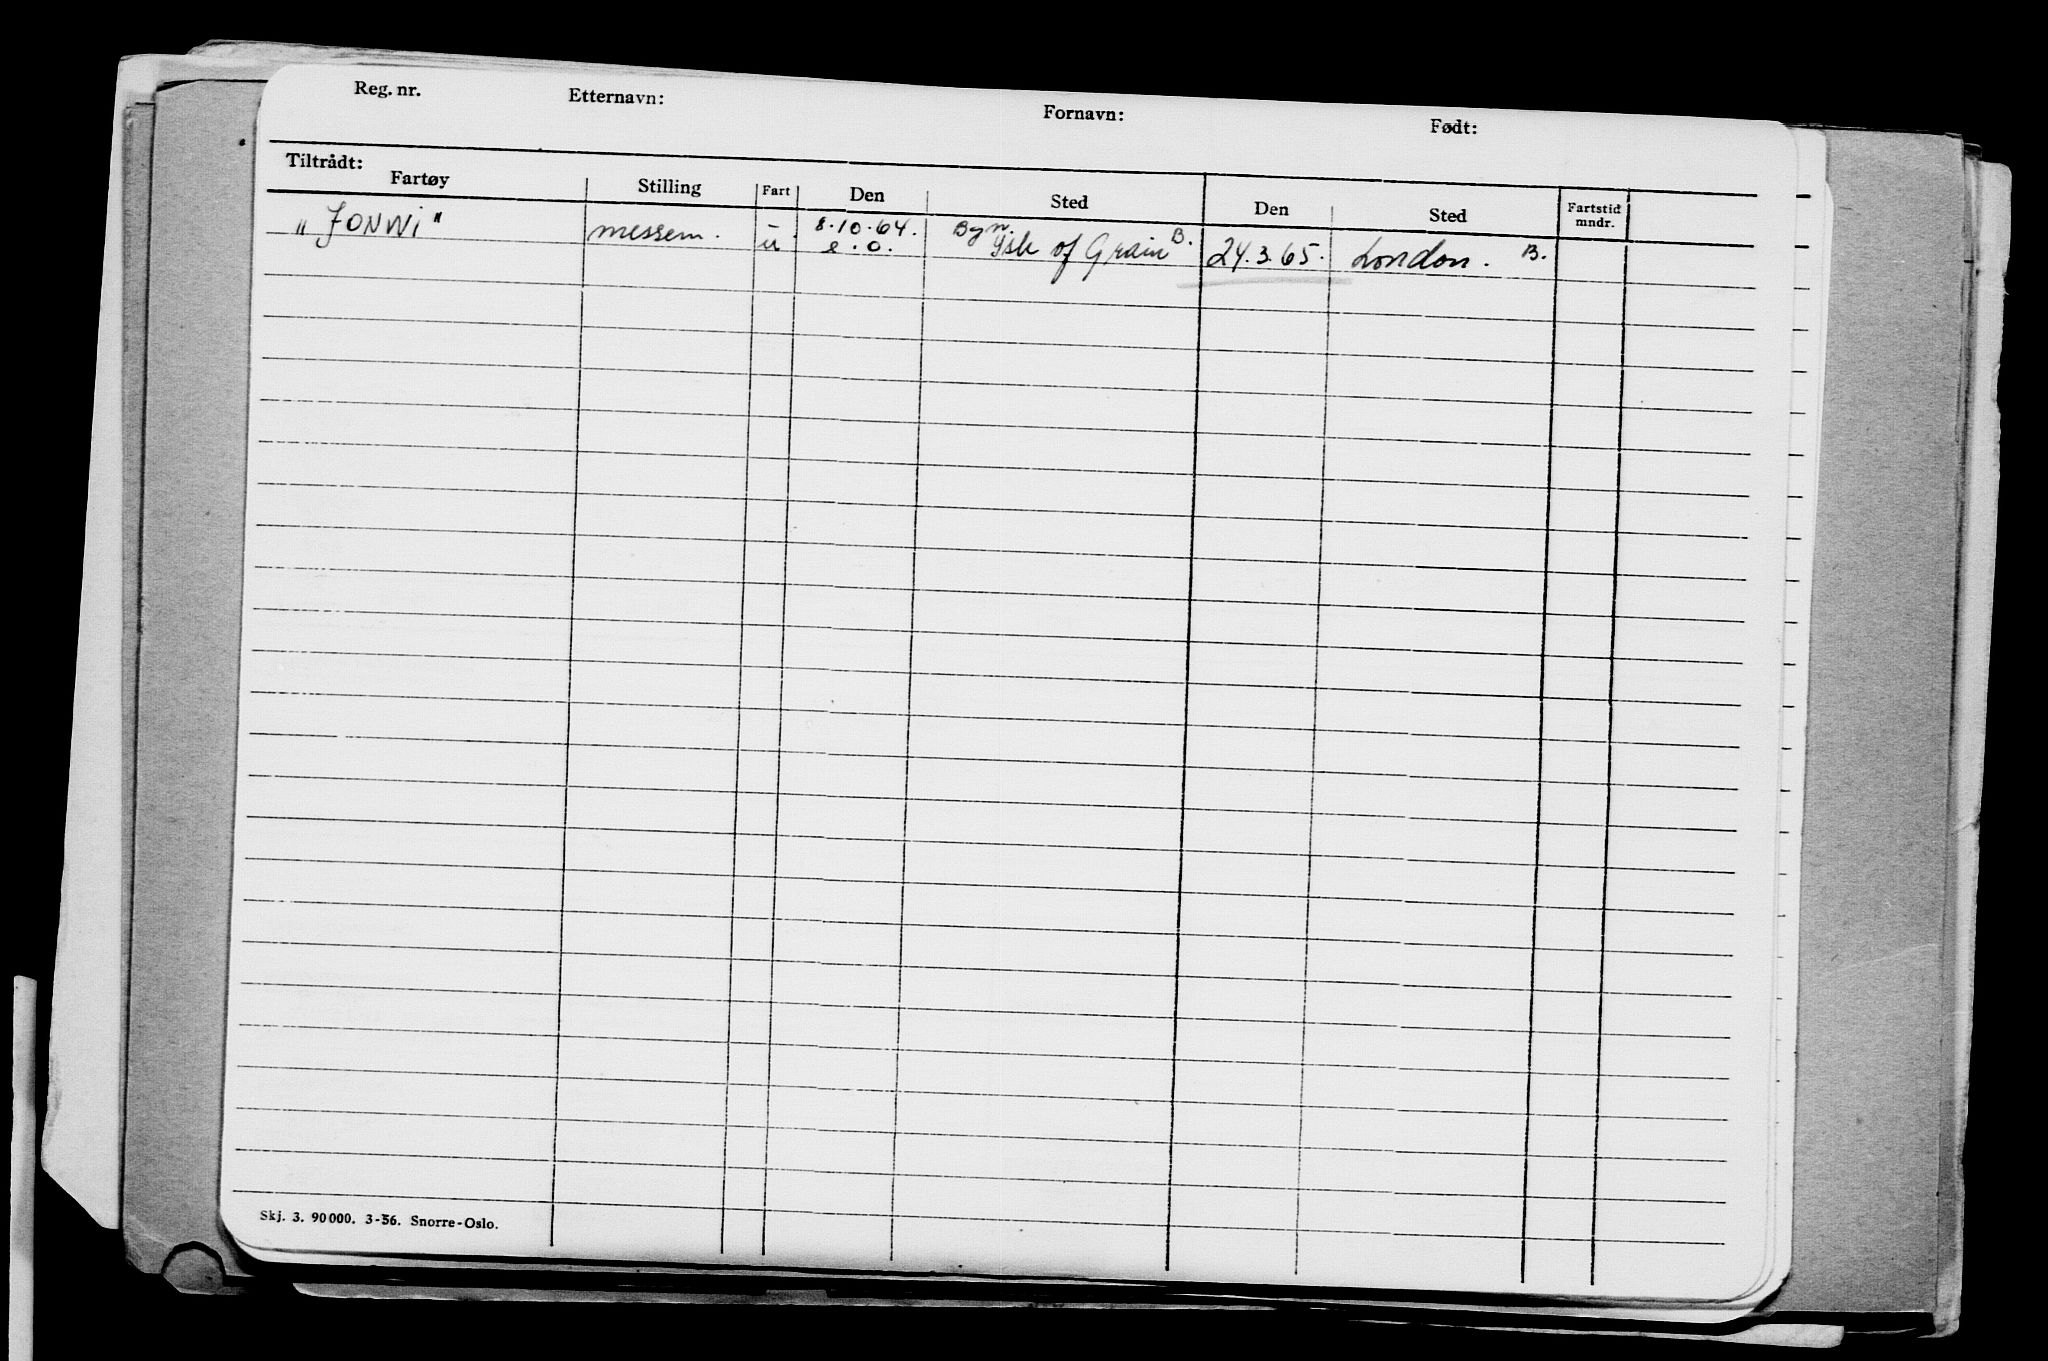 Reg. nr. Etternavn: Fornavn: Født:
Tiltrådt:
Fartøy Stilling Fart Den Sted Den Sted Fartstid mndr.
"JONWI" messem. u. 8.10.64. Byn. Isle of Grain B. 24.3.65. London. B.
u e.o.
Skj. 3. 90000. 3-56. Snorre-Oslo.